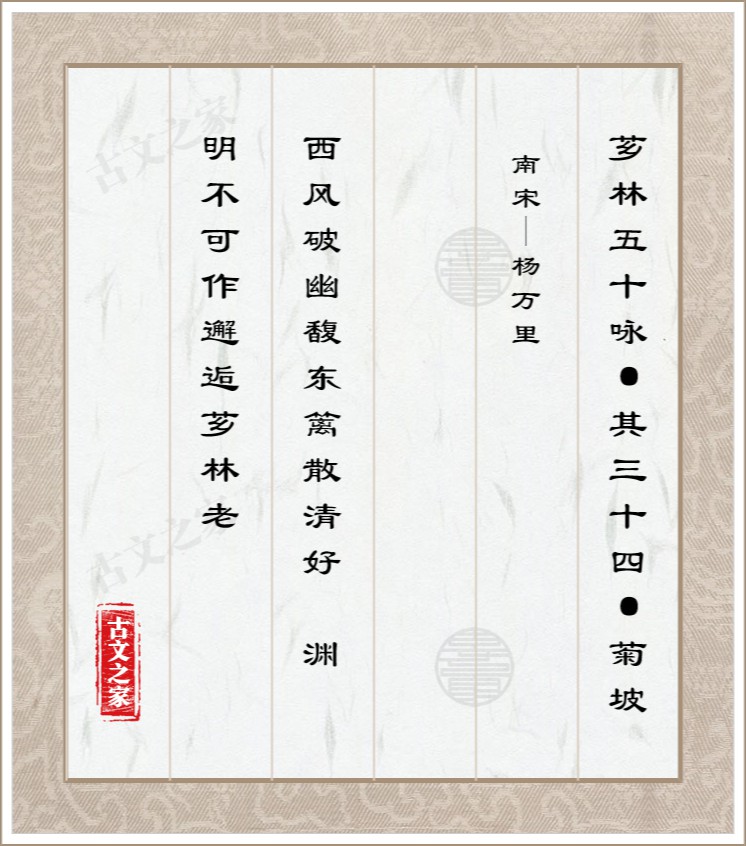 芗林五十咏•其三十四•菊坡
南宋—杨万里
西风破幽馥东篱散清好　渊
明不可作邂逅芗林老
古文之家
古文之家
古文之家